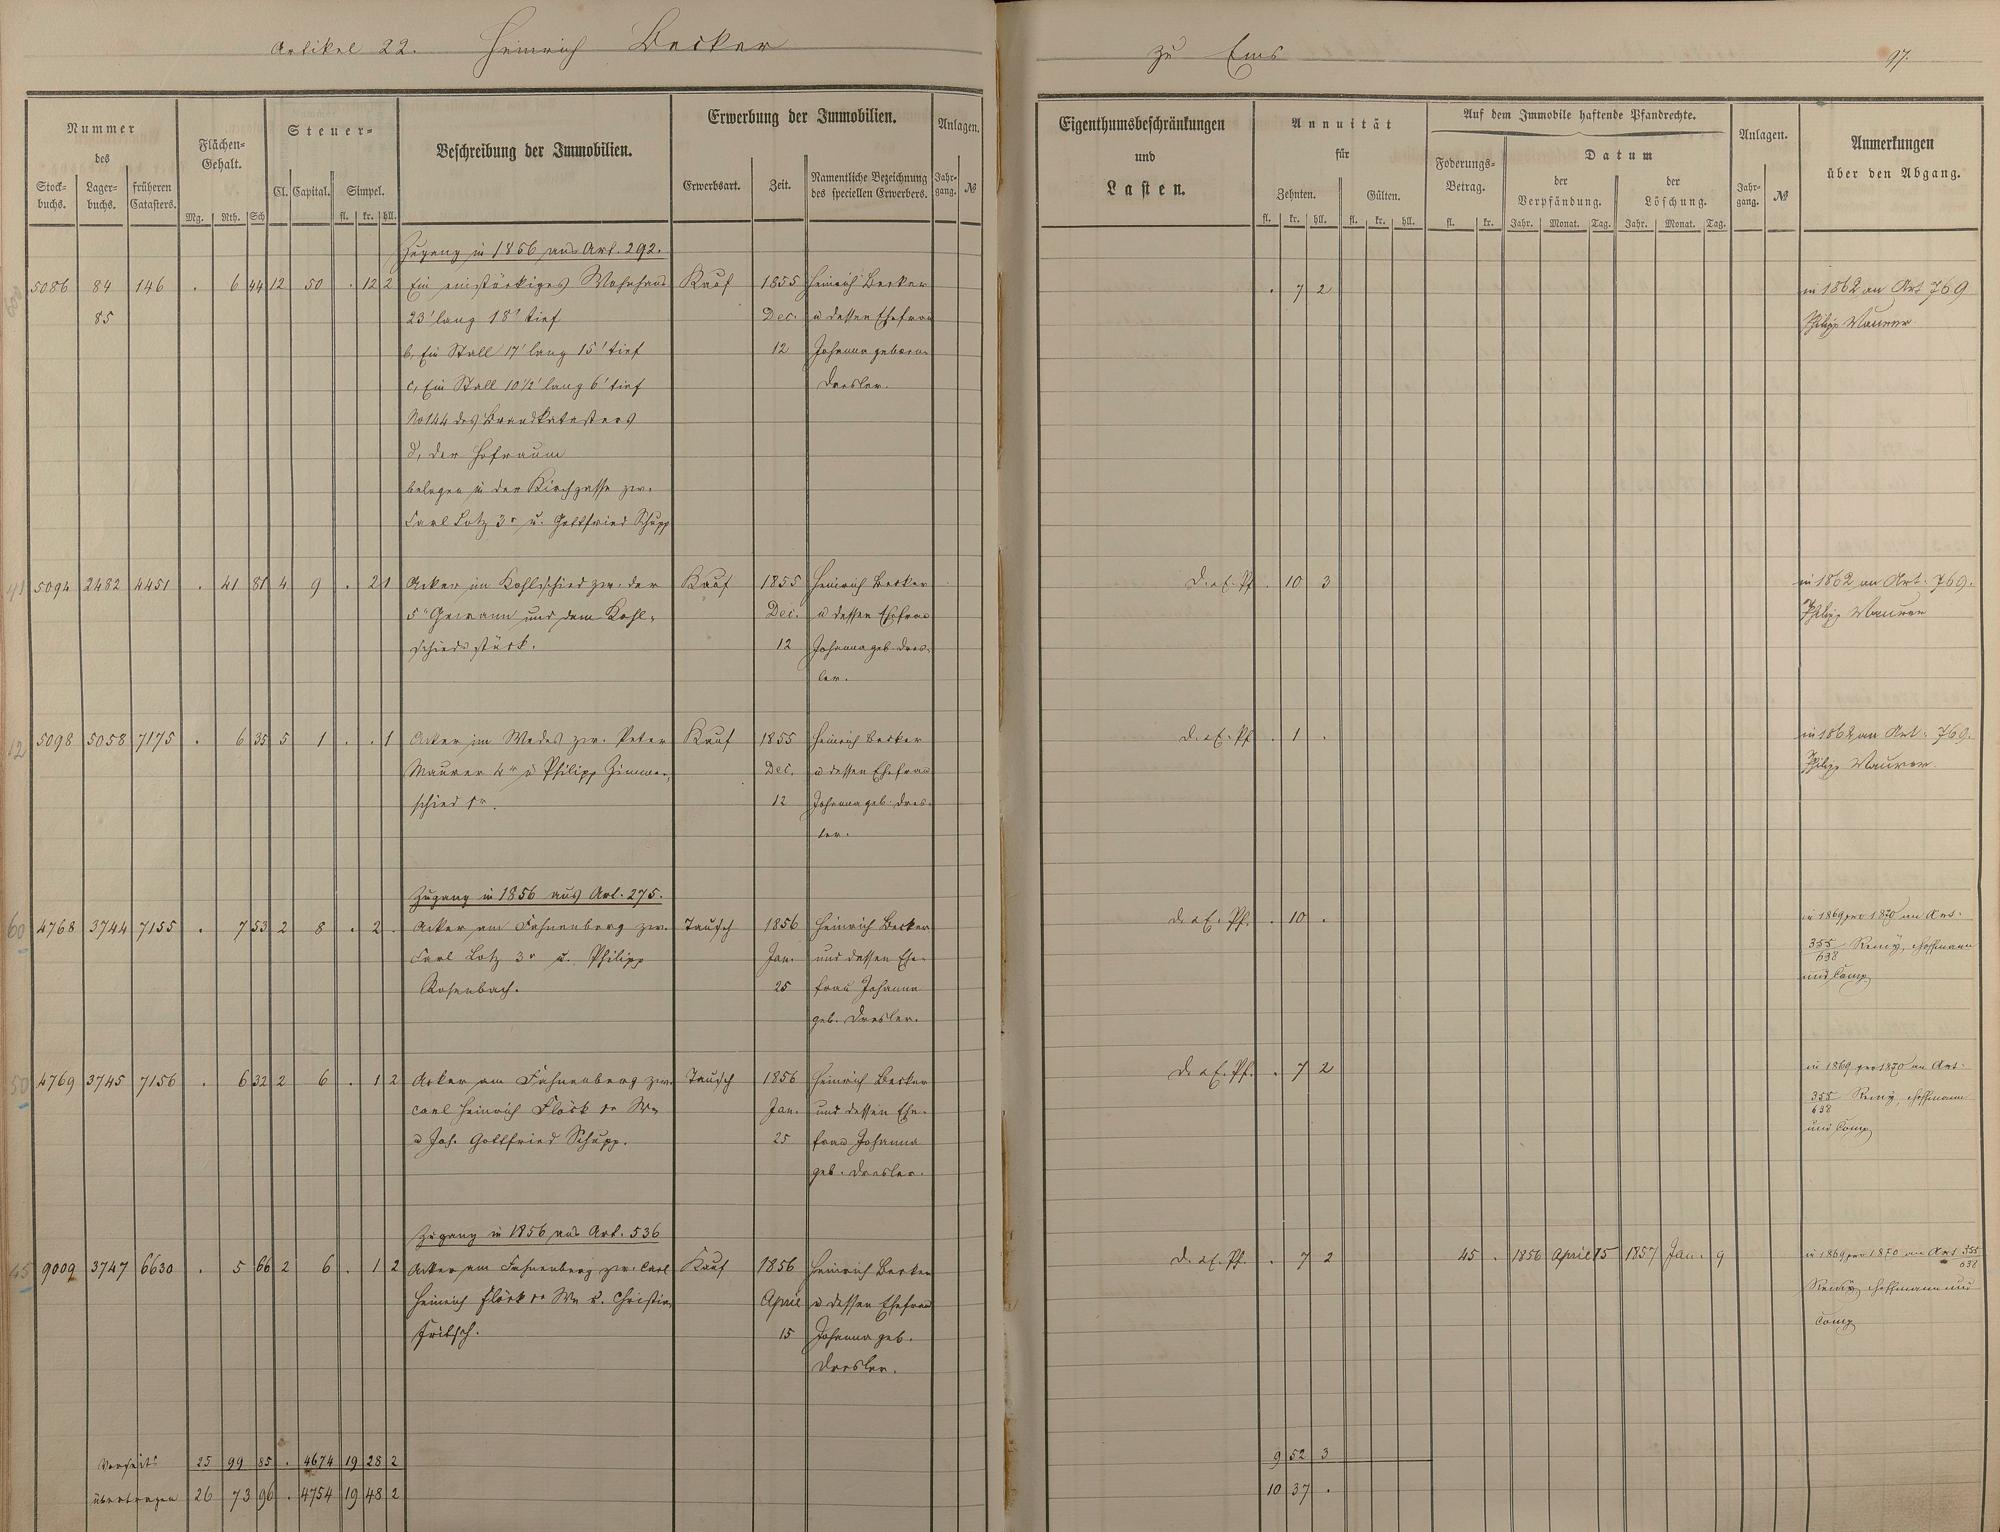 Artikel 22. Heinrich Becker
zu Ems
97.
Nummer des
Stockbuchs. Lagerbuchs. früheren Catasters.
Flächen-Gehalt.
Mg. Rth. Sch
Steuer-
Cl. Capital. Simpel.
fl. kr. hll.
Beschreibung der Immobilien.
Erwerbung der Immobilien.
Erwerbsart. Zeit. Namentliche Bezeichnung des speciellen Erwerbers.
Anlagen.
Jahrgang. №
Eigenthumsbeschränkungen und Lasten.
Annuität für
Zehnten. Gülten.
fl. kr. hll. fl. kr. hll.
Auf dem Immobile haftende Pfandrechte.
Foderungs-Betrag.
fl. kr.
Datum
der Verpfändung. der Löschung.
Jahr. Monat. Tag. Jahr. Monat. Tag.
Anlagen.
Jahrgang. №
Anmerkungen über den Abgang.
Zugang in 1856 aus Art. 292.
5086 84 146 . 6 44 12 50 . 12 2 Ein einstöckiges Wohnhaus Kauf 1855 Heinrich Becker . 7 2 in 1862 an Art 769
85 23' lang 18' tief Dec. u dessen Ehefrau Philipp Maurer
b, Ein Stall 17' lang 15' tief 12 Johanna geborne
c, Ein Stall 10 1/2' lang 6' tief Dresler.
No 144 des Brandkatasters
d, der Hofraum
belegen in der Kirchgasse zw.
Carl Lotz 3r u. Gottfried Schupp
41 5094 2482 4451 . 41 81 4 9 . 2 1 Acker im Kohlschied zw. der Kauf 1855 Heinrich Becker D. a E. Pf. . 10 3 in 1862 an Art. 769.
5n Gewann und dem Kohl- Dec. u dessen Ehefrau Philipp Maurer
schiedsstück. 12 Johanna geb. Dres-
ler.
12 5098 5058 7175 . 6 35 5 1 . . 1 Acker im Wedes zw. Peter Kauf 1855 Heinrich Becker D. a E. Pf. . 1 . in 1862 an Art. 769.
Maurer 4r u Philipp Zimmer- Dec. u dessen Ehefrau Philipp Maurer.
schied 1r. 12 Johanna geb. Dres-
ler.
Zugang in 1856 aus Art. 275.
60 4768 3744 7155 . 7 53 2 8 . 2 . Acker am Fahnenberg zw. Tausch 1856 Heinrich Becker D. a E. Pf. . 10 . in 1869 pro 1870 an Art.
Carl Lotz 3r u. Philipp Jan. und dessen Ehe- 355/638 Remy, Hoffmann
Rosenbach. 25 frau Johanna und Comp
geb. Dresler.
50 4769 3745 7156 . 6 32 2 6 . 1 2 Acker am Fahnenberg zw. Tausch 1856 Heinrich Becker D. a E. Pf. . 7 2 in 1869 pro 1870 an Art.
Carl Heinrich Flöck 1r Ww Jan. und dessen Ehe- 355/638 Remy, Hoffmann
u Joh. Gottfried Schupp. 25 frau Johanna und Comp
geb. Dresler.
Zugang in 1856 aus Art. 536
45 9009 3747 6630 . 5 66 2 6 . 1 2 Acker am Fahnenberg zw. Carl Kauf 1856 Heinrich Becker D. a E. Pf. . 7 2 45 . 1856 April 15 1857 Jan. 9 in 1869 pro 1870 an Art 355/638
Heinrich Flöck 1r Ww u. Christian April u dessen Ehefrau Remy Hoffmann und
Fritsch. 15 Johanna geb. Comp
Dresler.
Vorseits 25 99 85 . 4674 19 28 2 9 52 3
übertragen 26 73 96 . 4754 19 48 2 10 37 .